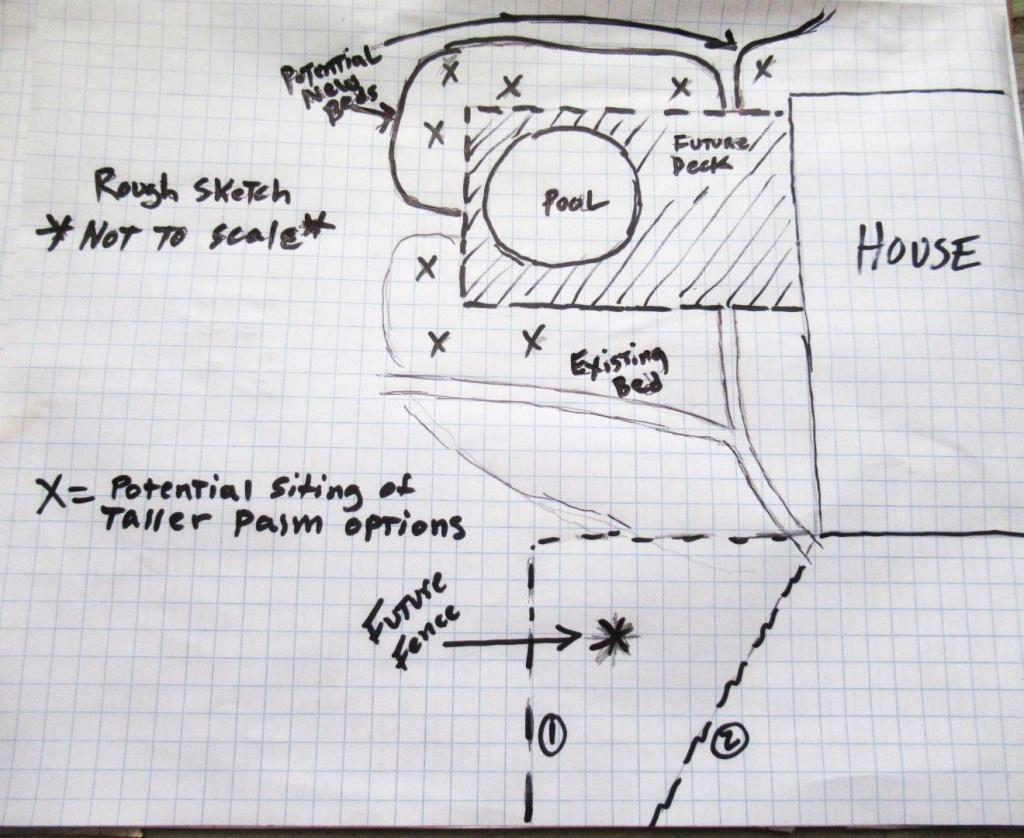 Potential
New
Beds
Future
Deck
Pool
Rough Sketch
*Not to scale*
House
X
X
X
X
X
X
X
X
Existing
Bed
X= Potential Siting of
Taller Palm options
Future
Fence
1
2